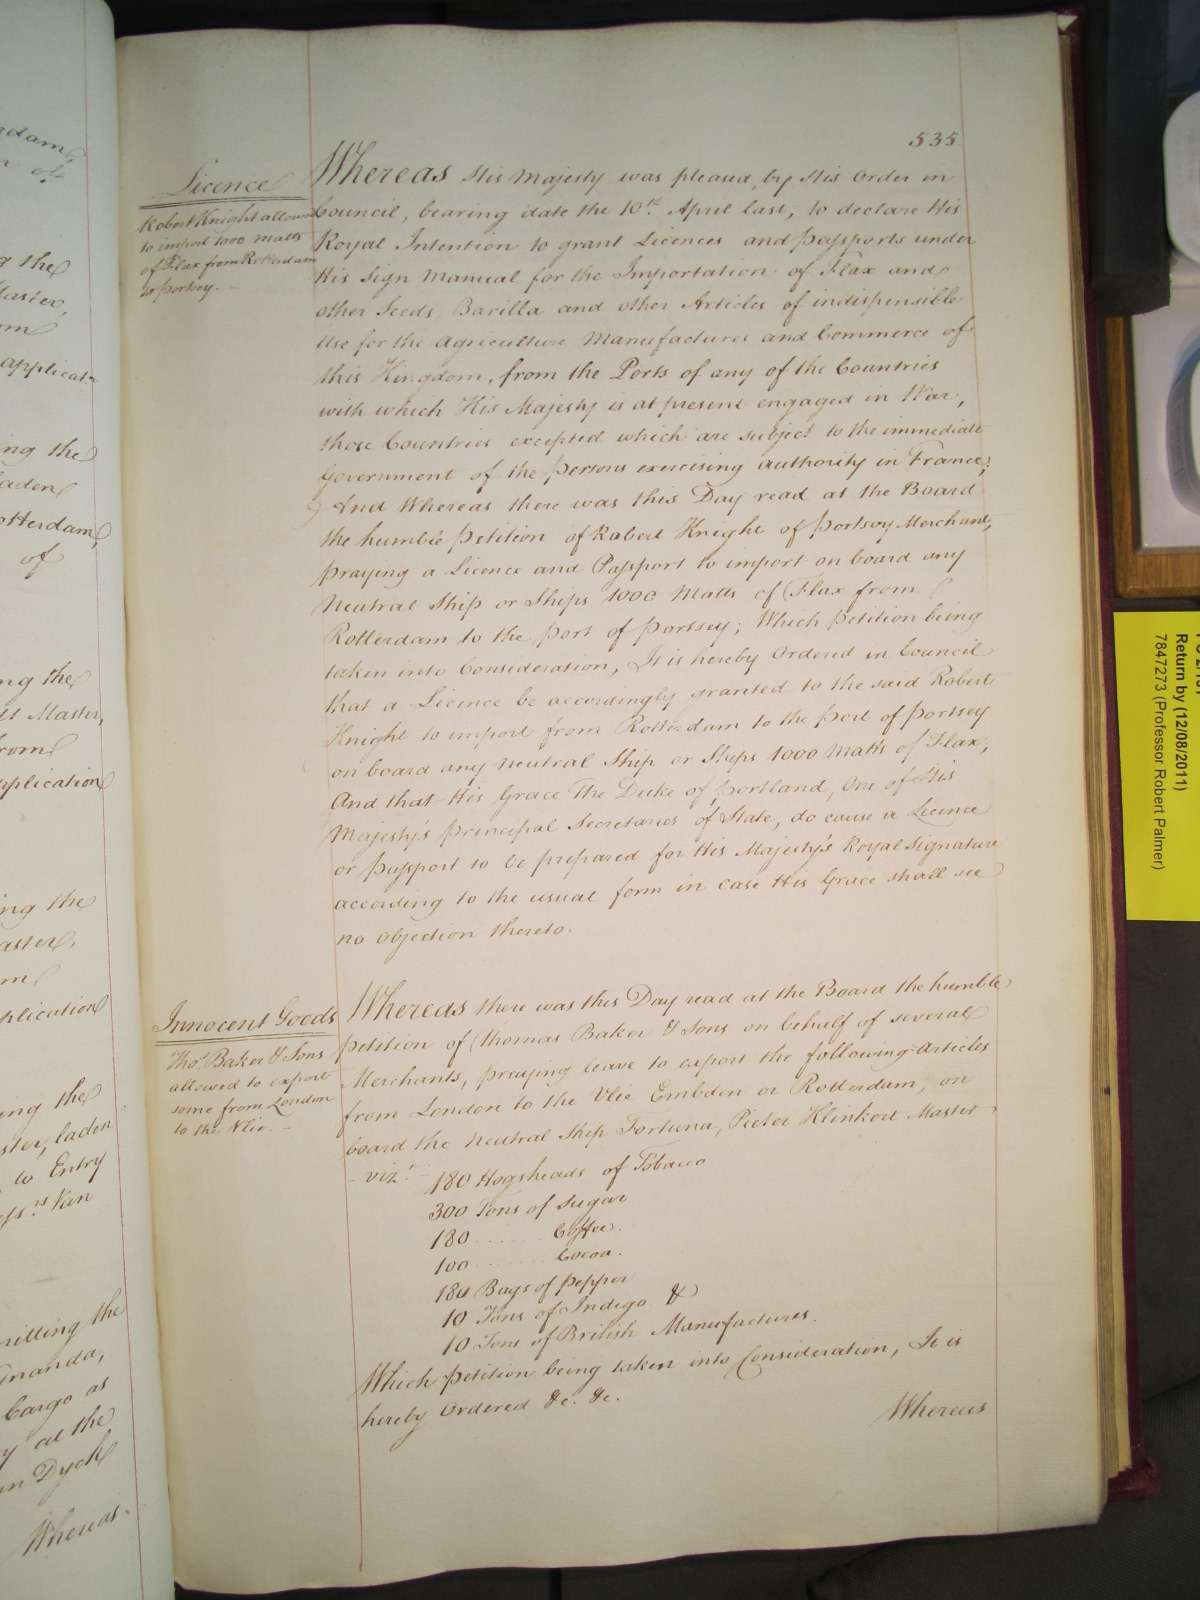 535
Licence
Robert Knight allowed
to import 1000 Matts
of Flax from Rotterdam
to Portsey.
Whereas His Majesty was pleased, by His Order in
Council, bearing date the 10th. April last, to declare His
Royal Intention to grant Licences and Passports under
His Sign Manual for the Importation of Flax and
other Seeds, Barilla and other Articles of indispensible
Use for the Agriculture Manufactures and Commerce of
this Kingdom, from the Ports of any of the Countries
with which His Majesty is at present engaged in War,
those Countries excepted which are subject to the immediate
Government of the Persons exercising authority in France;
And Whereas there was this Day read at the Board
the humble Petition of Robert Knight of Portsoy Merchant,
praying a Licence and Passport to import on board any
Neutral Ship or Ships 1000 Matts of Flax from
Rotterdam to the Port of Portsey; Which Petition being
taken into Consideration, It is hereby Ordered in Council
that a Licence be accordingly granted to the said Robert
Knight to import from Rotterdam to the Port of Portsey
on board any Neutral Ship or Ships 1000 Matts of Flax,
And that His Grace The Duke of Portland, One of His
Majesty's Principal Secretaries of State, do cause a Licence
or Passport to be prepared for His Majesty's Royal Signature
according to the usual form in case His Grace shall see
no Objection thereto.
Innocent Goods
Thos. Baker & Sons
allowed to export
some from London
to the Vlie.
Whereas there was this Day read at the Board the humble
Petition of Thomas Baker & Sons on behalf of several
Merchants, praying leave to export the following Articles
from London to the Vlie Embden or Rotterdam, on
board the Neutral Ship Fortuna, Pieter Klinkert Master
vizt.
180 Hogsheads of Tobacco
300 Tons of Sugar
180 ...... Coffee.
100 ...... Cocoa.
180 Bags of Pepper
10 Tons of Indigo &
10 Tons of British Manufactures.
Which Petition being taken into Consideration, It is
hereby Ordered &c. &c.
Whereas
Return by (12/08/2011)
7847273 (Professor Robert Palmer)